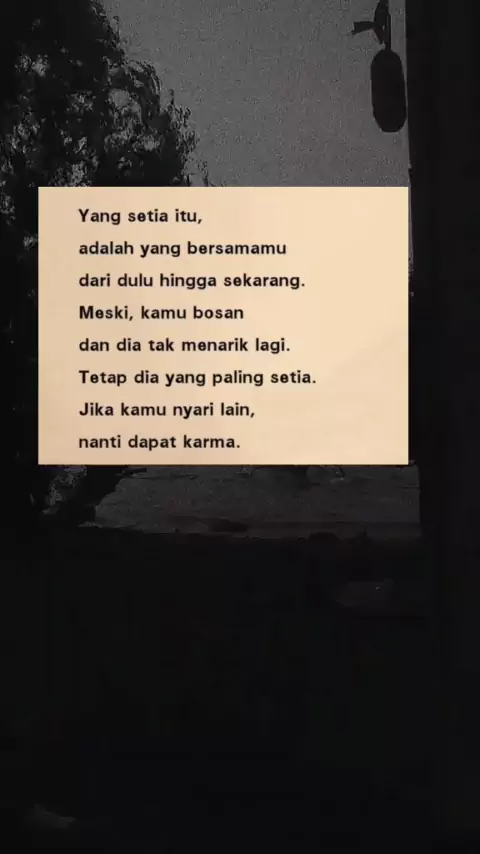 Yang setia itu,
adalah yang bersamamu
dari dulu hingga sekarang.
Meski, kamu bosan
dan dia tak menarik lagi.
Tetap dia yang paling setia.
Jika kamu nyari lain,
nanti dapat karma.